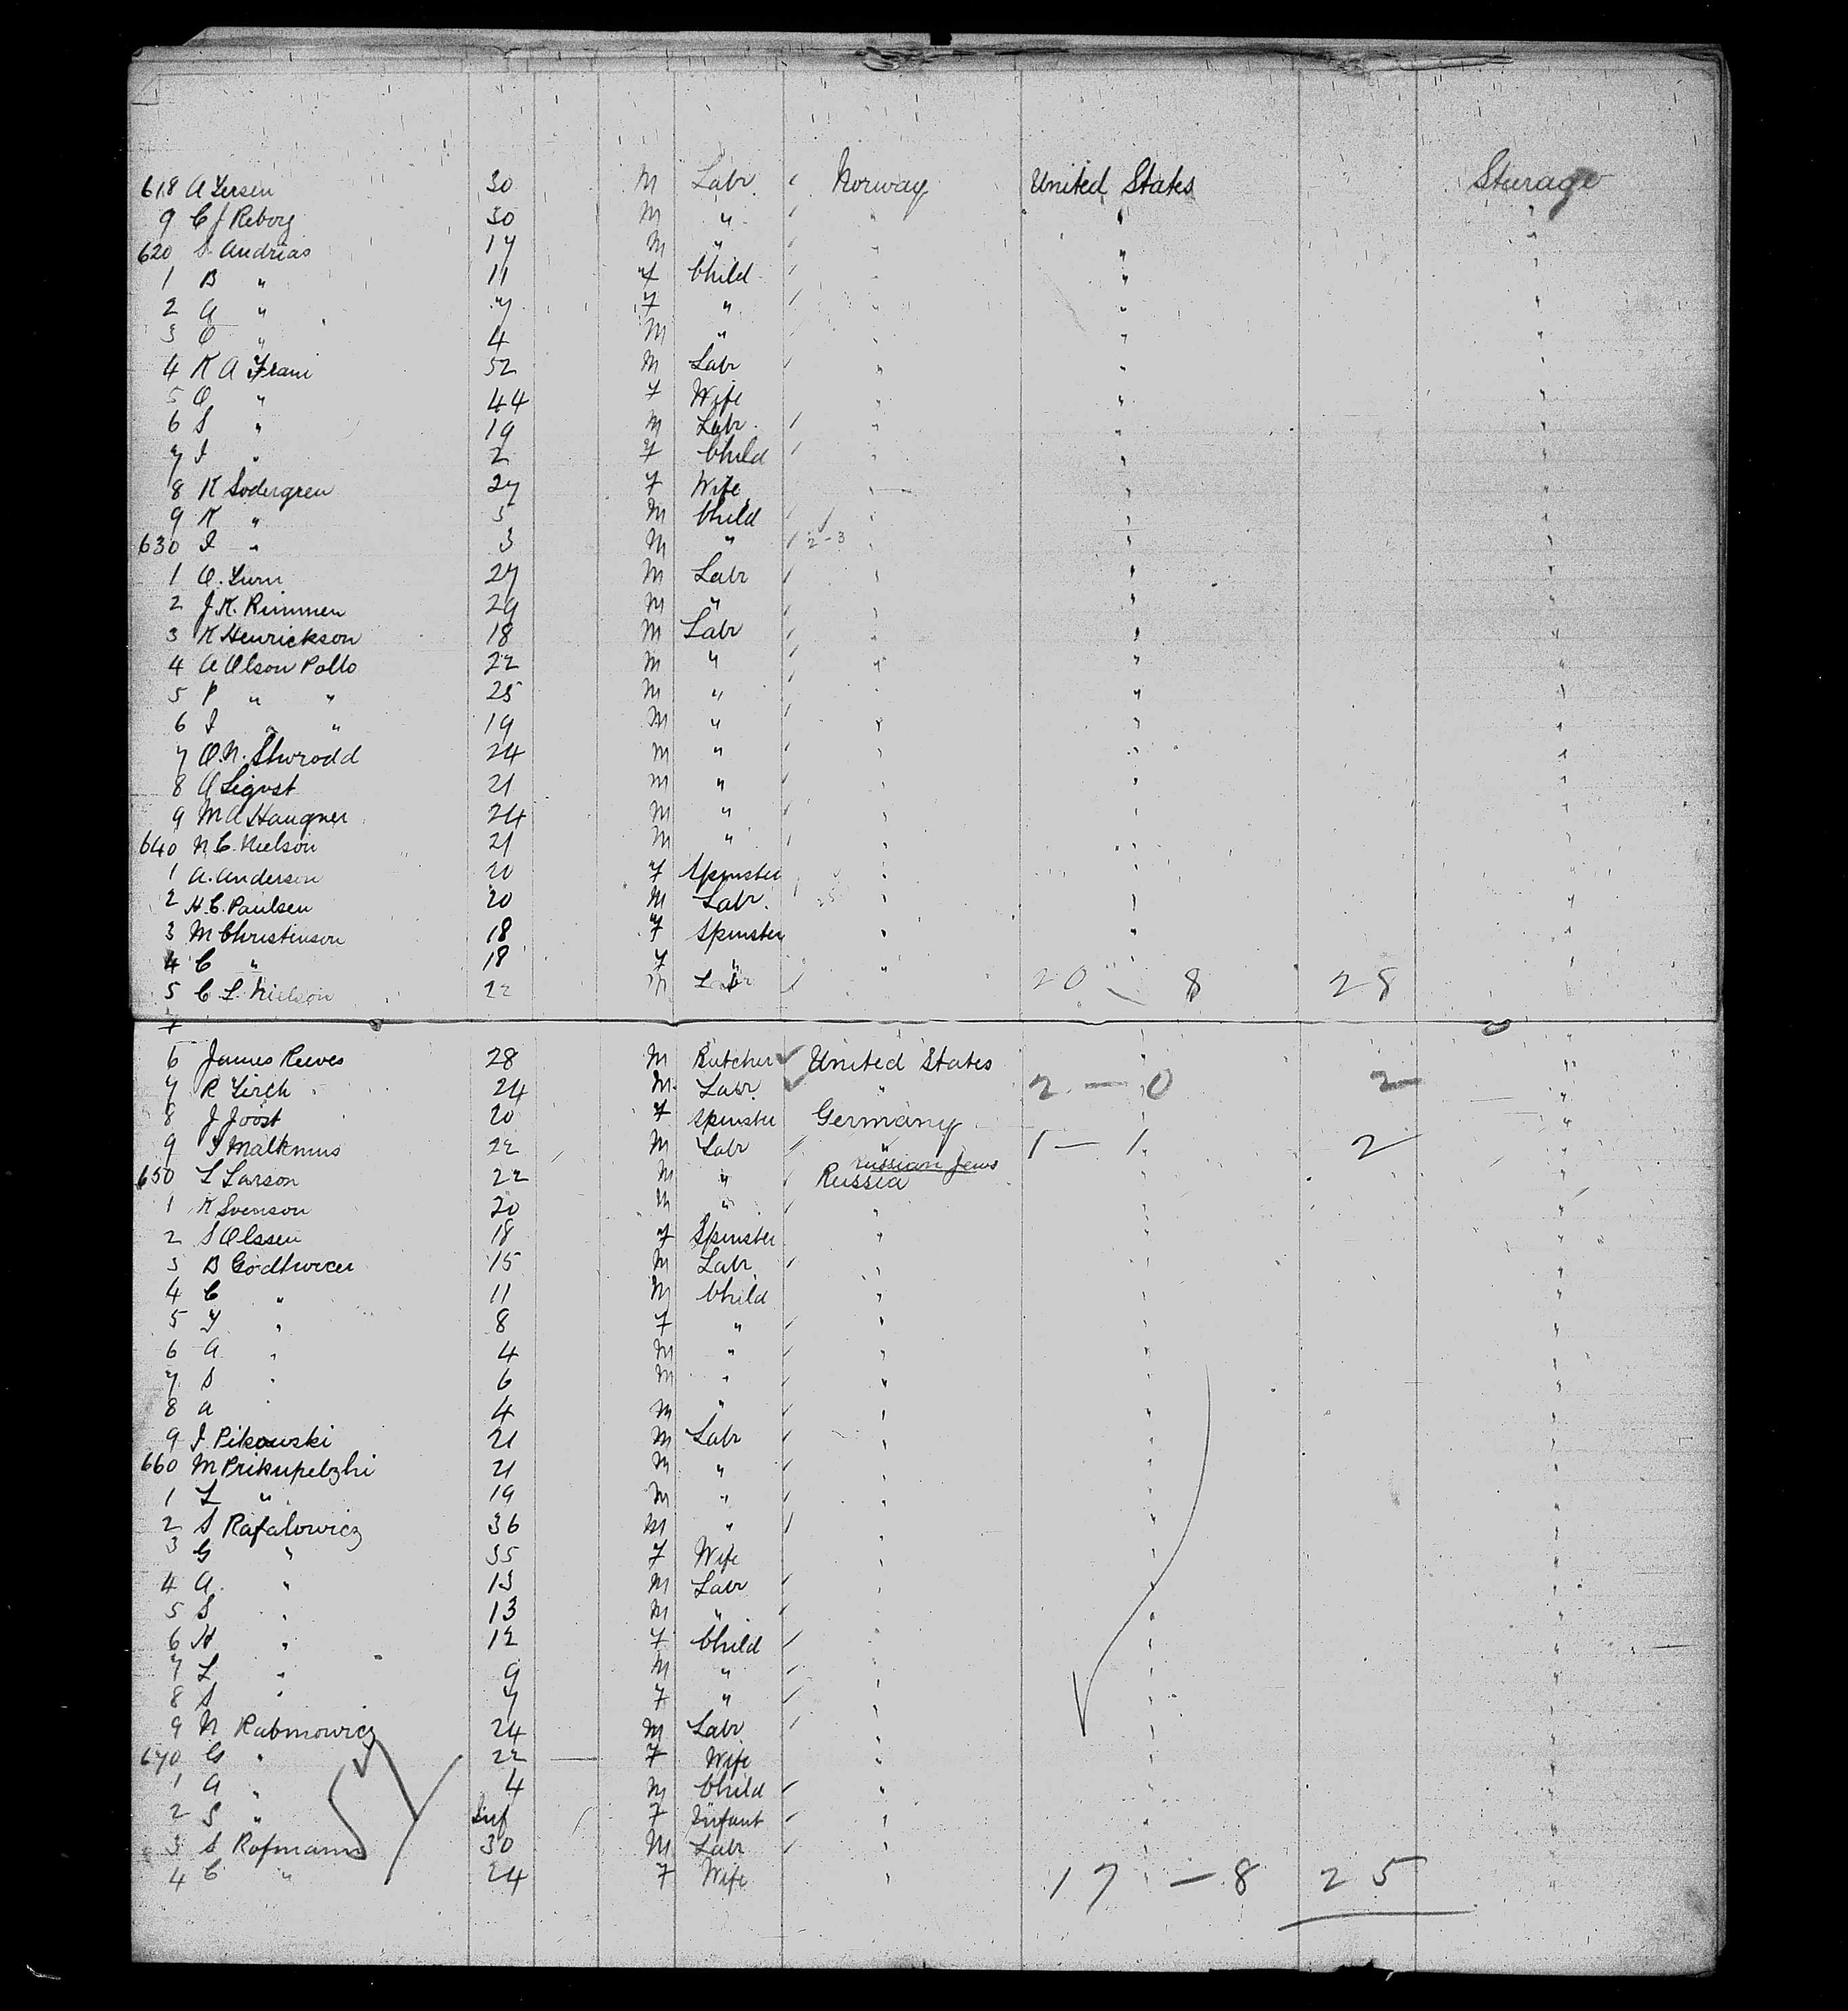 618 A Iersen 30 M Labr. Norway United States Sturage
9 C J Reborg 30 M " " " "
620 S. Andrias 17 M " " " "
1 B " 11 f Child " " "
2 A " 7 f " " " "
3 O " 4 M " " " "
4 K A Frani 52 M Labr " " "
5 O " 44 f Wife " " "
6 S " 19 M Labr. " " "
7 I " 2 f Child " " "
8 K Sodergren 27 f Wife " " "
9 K " 5 M Child " " "
630 I " 3 M " 2-3 " " "
1 O. 27 M Labr " " "
2 J.K. Rimmen 29 M " " " "
3 K Henrickson 18 M Labr " " "
4 A Olson Pollo 22 M " " " "
5 P " " 25 M " " " "
6 I " " 19 M " " " "
7 O.N. Stwrodd 24 M " " " "
8 A Sigvst 21 M " " " "
9 M A Haugner 24 M " " " "
640 N.C. Nielson 21 M " " " "
1 A. Andersen 20 f Spinster " " "
2 H.C. Paulsen 20 M Labr. " " "
3 M Christinson 18 f Spinster " " "
4 C " 18 f " " "
5 C L. Nielson 22 M Labr 20 8 28
6 James Reeves 28 M Butcher United States " "
7 R Lirch 24 M. Labr. " 2 — 0 2 "
8 J Joost 20 f Spinster Germany " "
9 I Malkmus 22 M Labr " 1 — 1 2 "
Russian Jews
650 L Larson 22 M " Russia " "
1 K Svenson 20 M " " " "
2 S Olssen 18 f Spinster " " "
3 B Godtwicer 15 M Labr " " "
4 C " 11 M Child " " "
5 Y " 8 f " " " "
6 A " 4 M " " " "
7 S " 6 M " " " "
8 A " 4 M " " " "
9 I Pikowski 21 M Labr " " "
660 M Prikupelzhi 21 M " " " "
1 L " 19 M " " " "
2 S Rafalowicz 36 M " " " "
3 G " 35 f Wife " " "
4 A. " 13 M Labr " " "
5 S " 13 M " " " "
6 H " 12 f Child " " "
7 L " 9 M " " " "
8 S " 7 f " " " "
9 N Rabmowicz 24 M Labr " " "
670 G " 22 — f Wife " " "
1 A " 4 M Child " " "
2 S " Inf f Infant " " "
3 S Rofmann 30 M Labr " " "
4 C " 24 f Wife " 17 — 8 25 "